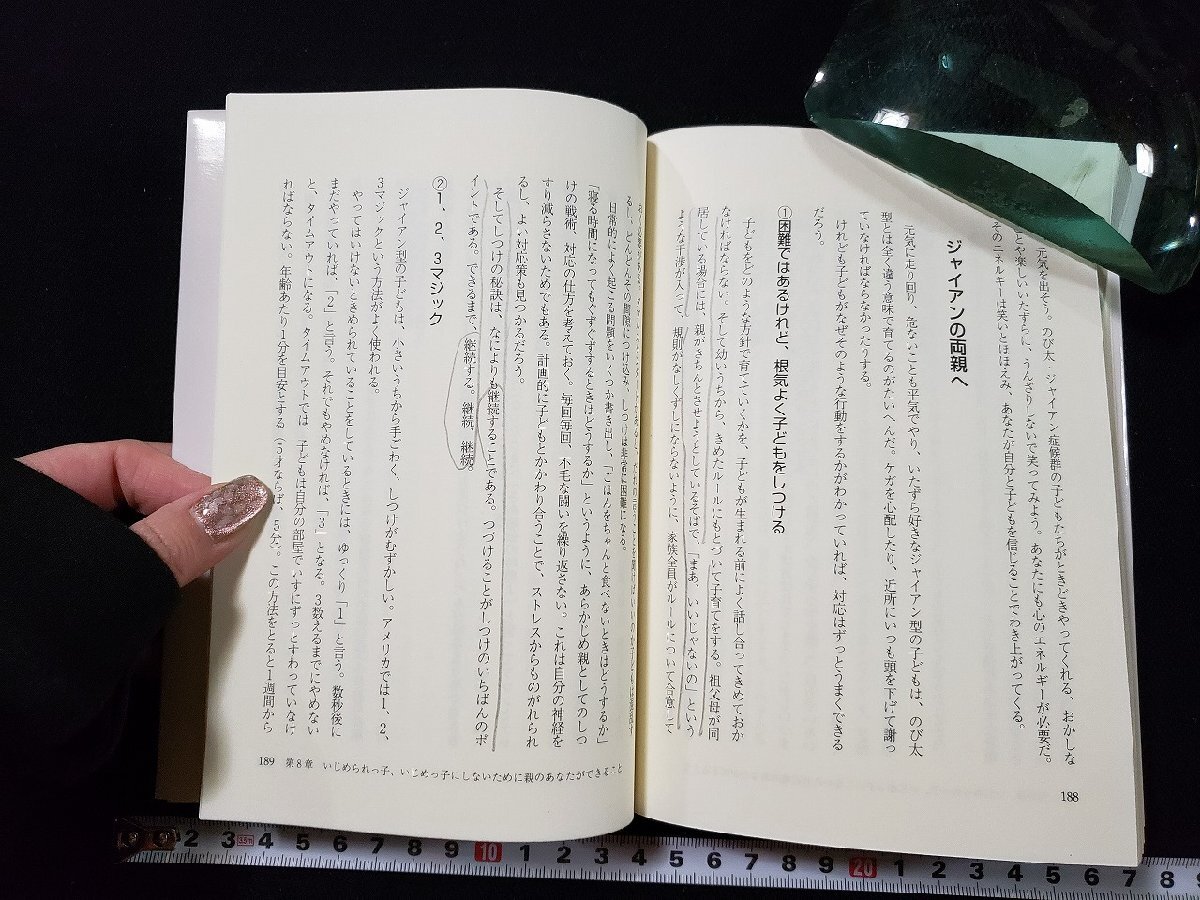 元気を出そう。のび太、ジャイアン症候群の子どもたちがときどきやってくれる、おかしな
ことや楽しいいたずらに、うんざりしないで笑ってみよう。あなたにも心のエネルギーが必要だ。
そのエネルギーは笑いとほほえみ、あなたが自分と子どもを信じることでわき上がってくる。
ジャイアンの両親へ
元気に走り回り、危ないことも平気でやり、いたずら好きなジャイアン型の子どもは、のび太
型とは全く違う意味で育てるのがたいへんだ。ケガを心配したり、近所にいつも頭を下げて謝っ
ていなければならなかったりする。
けれども子どもがなぜそのような行動をするかがわかっていれば、対応はずっとうまくできる
だろう。
①困難ではあるけれど、根気よく子どもをしつける
子どもをどのような方針で育てていくかを、子どもが生まれる前によく話し合ってきめておか
なければならない。そして幼いうちから、きめたルールにもとづいて子育てをする。祖父母が同
居している場合には、親がきちんとさせようとしているそばで、「まあ、いいじゃないの」という
ような干渉が入って、規則がなしくずしにならないように、家族全員がルールについて合意して
188
るし、どんどんその間隙につけ込み、しつけは非常に困難になる。
日常的によく起こる問題をいくつか書き出し、「ごはんをちゃんと食べないときはどうするか」
「寝る時間になってもぐずぐずするときはどうするか」というように、あらかじめ親としてのしつ
けの戦術、対応の仕方を考えておく。毎回毎回、不毛な闘いを繰り返さない。これは自分の神経を
すり減らさないためでもある。計画的に子どもとかかわり合うことで、ストレスからものがれられ
るし、よい対応策も見つかるだろう。
そしてしつけの秘訣は、なによりも継続することである。つづけることがしつけのいちばんのポ
イントである。できるまで、継続する。継続、継続。
②1、2、3マジック
ジャイアン型の子どもは、小さいうちから手ごわく、しつけがむずかしい。アメリカでは1、2、
3マジックという方法がよく使われる。
やってはいけないときめられていることをしているときには、ゆっくり「1」と言う。数秒後に
まだやっていれば、「2」と言う。それでもやめなければ、「3」となる。3数えるまでにやめない
と、タイムアウトになる。タイムアウトでは、子どもは自分の部屋でいすにずっとすわっていなけ
ればならない。年齢あたり1分を目安とする(5才ならば、5分)。この方法をとると1週間から
189 第8章 いじめられっ子、いじめっ子にしないために親のあなたができること
2 3 4 5 6 7 8 9 10 1 2 3 4 5 6 7 8 9 20 1 2 3 4 5 6 7 8 9